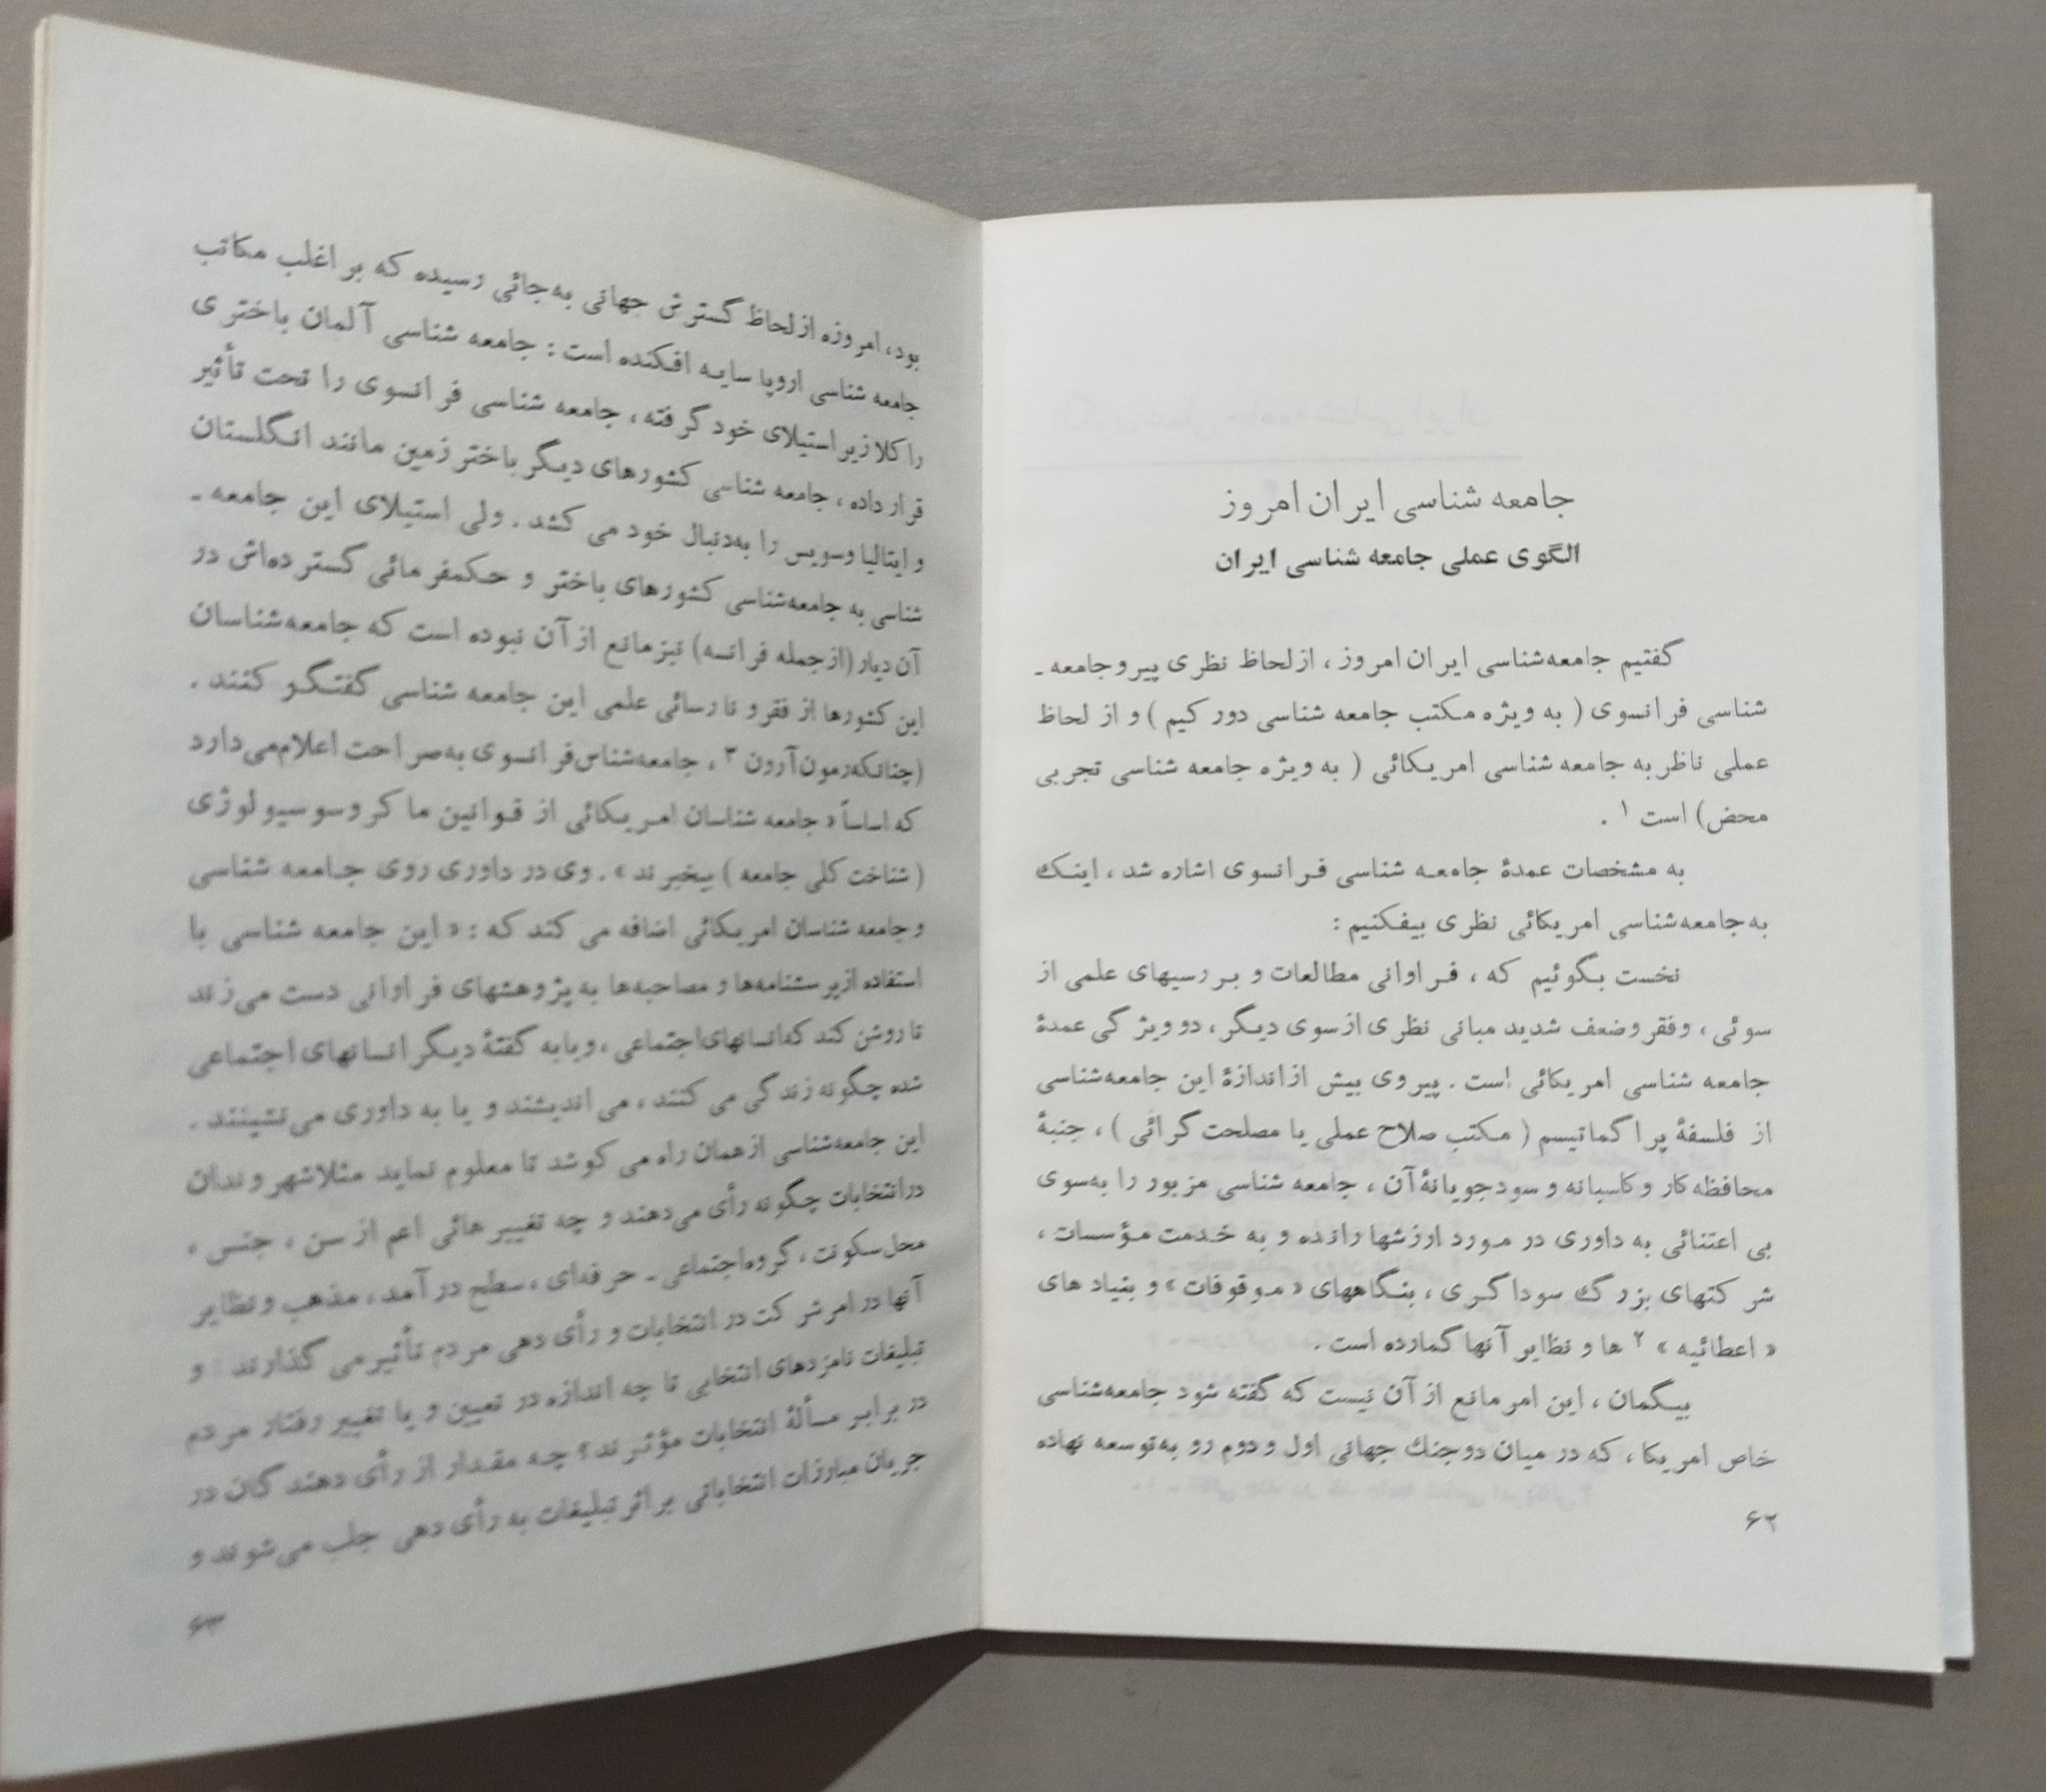 جامعه شناسی ایران امروز
الگوی عملی جامعه شناسی ایران
گفتیم جامعه‌شناسی ایران امروز ، از لحاظ نظری پیرو جامعه ـ
شناسی فرانسوی ( به ویژه مکتب جامعه شناسی دورکیم ) و از لحاظ
عملی ناظر به جامعه شناسی امریکائی ( به ویژه جامعه شناسی تجربی
محض) است ۱ .
به مشخصات عمدهٔ جامعه شناسی فرانسوی اشاره شد ، اینک
به جامعه‌شناسی امریکائی نظری بیفکنیم :
نخست بگوئیم که ، فراوانی مطالعات و بررسیهای علمی از
سوئی ، و فقر و ضعف شدید مبانی نظری از سوی دیگر ، دو ویژگی عمدهٔ
جامعه شناسی امریکائی است . پیروی بیش از اندازهٔ این جامعه‌شناسی
از فلسفهٔ پراگماتیسم ( مکتب صلاح عملی یا مصلحت گرائی ) ، جنبهٔ
محافظه کار و کاسبانه و سودجویانهٔ آن ، جامعه شناسی مزبور را به‌سوی
بی اعتنائی به داوری در مورد ارزشها رانده و به خدمت مؤسسات ،
شرکتهای بزرگ سوداگری ، بنگاههای « موقوفات » و بنیادهای
« اعطائیه » ۲ ها و نظایر آنها گمارده است .
بیگمان ، این امر مانع از آن نیست که گفته شود جامعه‌شناسی
خاص امریکا ، که در میان دو جنگ جهانی اول و دوم رو به‌توسعه نهاده
۶۲
بود، امروزه از لحاظ گسترش جهانی به‌جائی رسیده که بر اغلب مکاتب
جامعه شناسی اروپا سایه افکنده است : جامعه شناسی آلمان باختری
را کلا زیر استیلای خود گرفته ، جامعه شناسی فرانسوی را تحت تأثیر
قرار داده ، جامعه شناسی کشورهای دیگر باختر زمین مانند انگلستان
و ایتالیا و سویس را به‌دنبال خود می کشد . ولی استیلای این جامعه ـ
شناسی به جامعه‌شناسی کشورهای باختر و حکمفرمائی گسترده‌اش در
آن دیار (از جمله فرانسه) نیز مانع از آن نبوده است که جامعه‌شناسان
این کشورها از فقر و نارسائی علمی این جامعه شناسی گفتگو کنند .
(چنانکه رمون آرون ۳ ، جامعه‌شناس فرانسوی به‌صراحت اعلام می‌دارد
که اساساً « جامعه شناسان امریکائی از قوانین ماکروسوسیولوژی
( شناخت کلی جامعه ) بیخبرند » . وی در داوری روی جامعه شناسی
و جامعه شناسان امریکائی اضافه می کند که : « این جامعه شناسی با
استفاده از پرسشنامه‌ها و مصاحبه‌ها به پژوهشهای فراوانی دست می‌زند
تا روشن کند که انسانهای اجتماعی ، و یا به گفتهٔ دیگر انسانهای اجتماعی
شده چگونه زندگی می کنند ، می اندیشند و یا به داوری می‌نشینند .
این جامعه‌شناسی از همان راه می کوشد تا معلوم نماید مثلا شهروندان
در انتخابات چگونه رأی می‌دهند و چه تغییرهائی اعم از سن ، جنس ،
محل سکونت ، گروه اجتماعی ـ حرفه‌ای ، سطح درآمد ، مذهب و نظایر
آنها در امر شرکت در انتخابات و رأی دهی مردم تأثیر می گذارند : و
تبلیغات نامزدهای انتخابی تا چه اندازه در تعیین و یا تغییر رفتار مردم
در برابر مسألهٔ انتخابات مؤثرند ؟ چه مقدار از رأی دهندگان در
جریان مبارزات انتخاباتی بر اثر تبلیغات به رأی دهی جلب می‌شوند و
۶۳